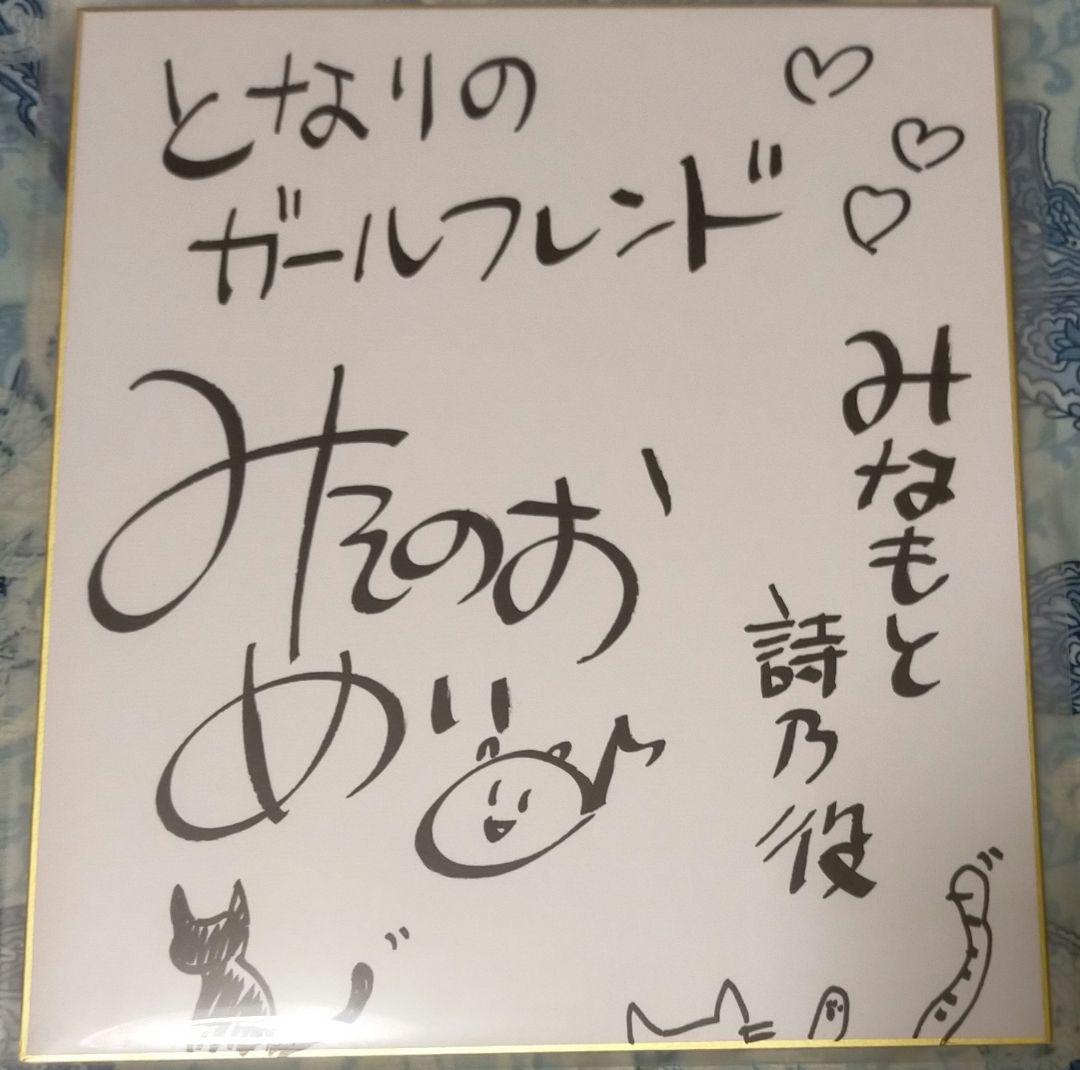 となりの
ガールフレンド
みなもと
詩乃役
みそのお
めい